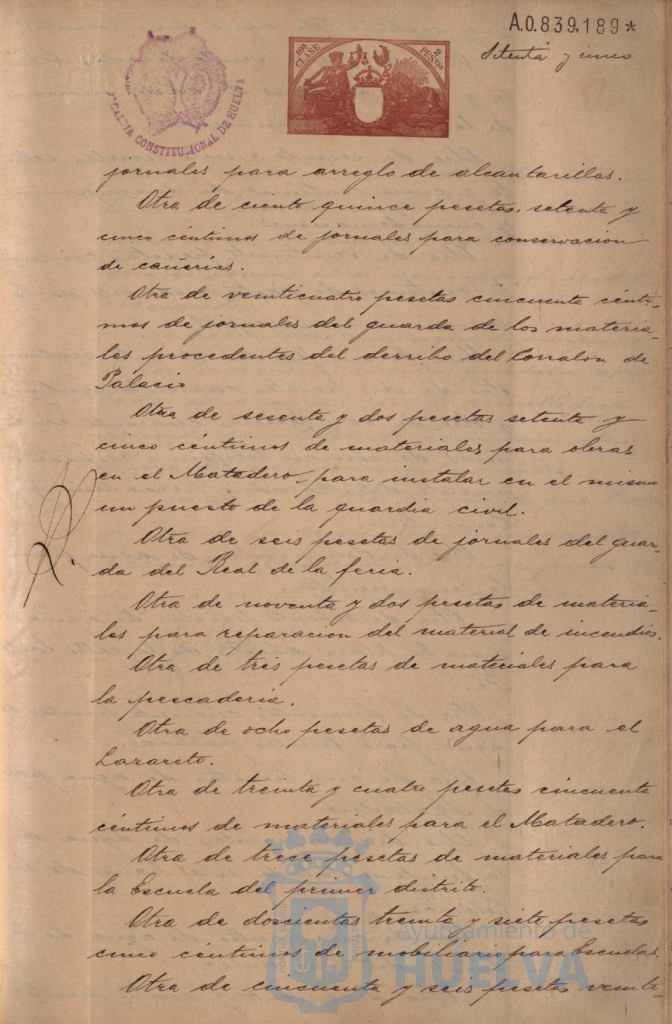 A.0.839,189*
Setenta y cinco
ALCALDIA CONSTITUCIONAL DE HUELVA
10ª CLASE
2 PESETAS
jornales para arreglo de alcantarillas.
Otra de ciento quince pesetas, setenta y
cinco céntimos de jornales para conservacion
de cañerias.
Otra de veinticuatro pesetas cincuenta cénti-
mos de jornales del guarda de los materia-
les procedentes del derribo del Corralon de
Palacio
Otra de sesenta y dos pesetas setenta y
cinco céntimos de materiales para obras
en el Matadero, para instalar en el mismo
un puesto de la guardia civil.
Otra de seis pesetas de jornales del guar-
da del Real de la feria.
Otra de noventa y dos pesetas de materia-
les para reparacion del material de incendios.
Otra de tres pesetas de materiales para
la pescaderia.
Otra de ocho pesetas de agua para el
Lazareto.
Otra de treinta y cuatro pesetas cincuenta
céntimos de materiales para el Matadero.
Otra de trece pesetas de materiales para
la Escuela del primer distrito.
Otra de doscientas treinta y siete pesetas
cinco céntimos de mobiliario para Escuelas.
Otra de cincuenta y seis pesetas veinti-
Ayuntamiento de
HUELVA